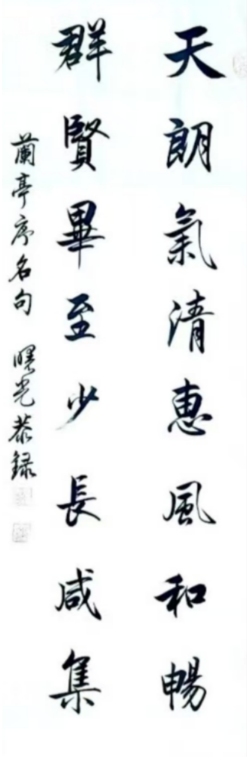 天朗氣清惠風和暢
群賢畢至少長咸集
蘭亭序名句 曙光恭録